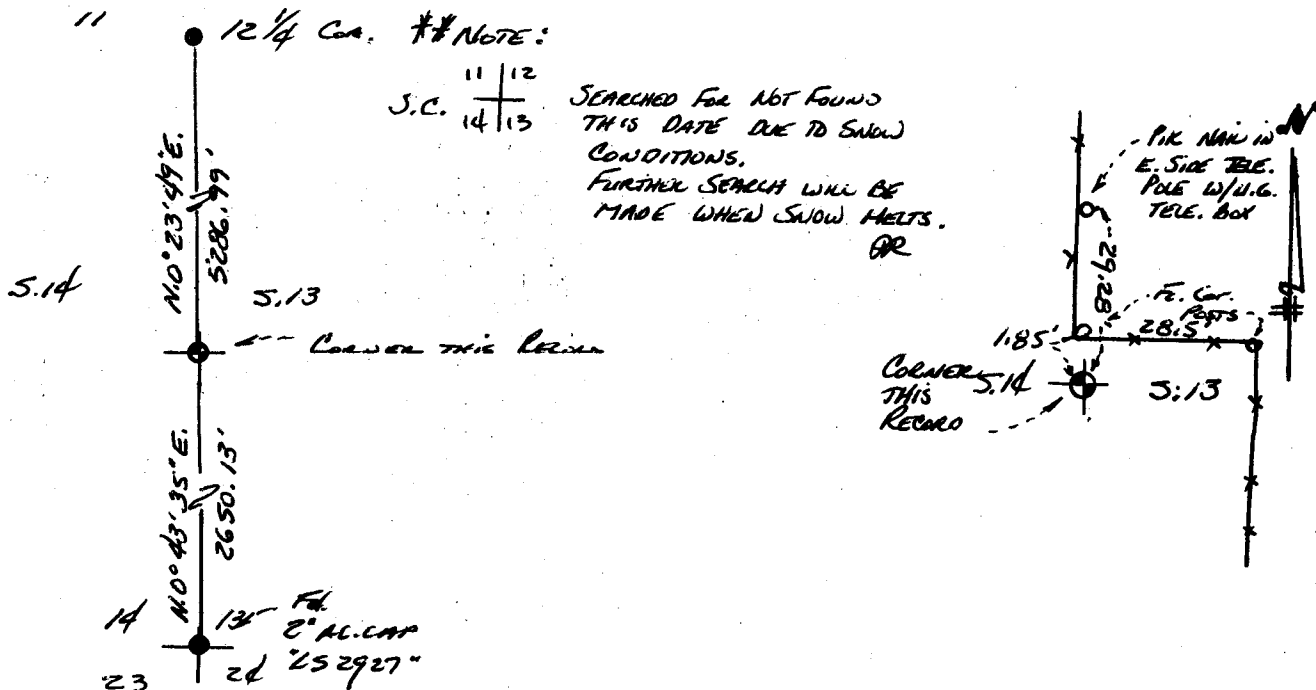 11
12 1/4 COR.
** NOTE:
S.C.
11 | 12
14 | 13
SEARCHED FOR NOT FOUND
THIS DATE DUE TO SNOW
CONDITIONS.
FURTHER SEARCH WILL BE
MADE WHEN SNOW MELTS.
N.0°23'49"E.
5286.99'
S.14
S.13
CORNER THIS RECORD
N.0°43'35"E.
2650.13'
14
13
Fd.
2" AL.CAP
"LS 2927"
23
24
N
P.K. NAIL IN
E. SIDE TELE.
POLE W/U.G.
TELE. BOX
29.28'
Fe. Cor.
POSTS
1.85'
28.5'
CORNER
THIS
RECORD
S.14
S.13